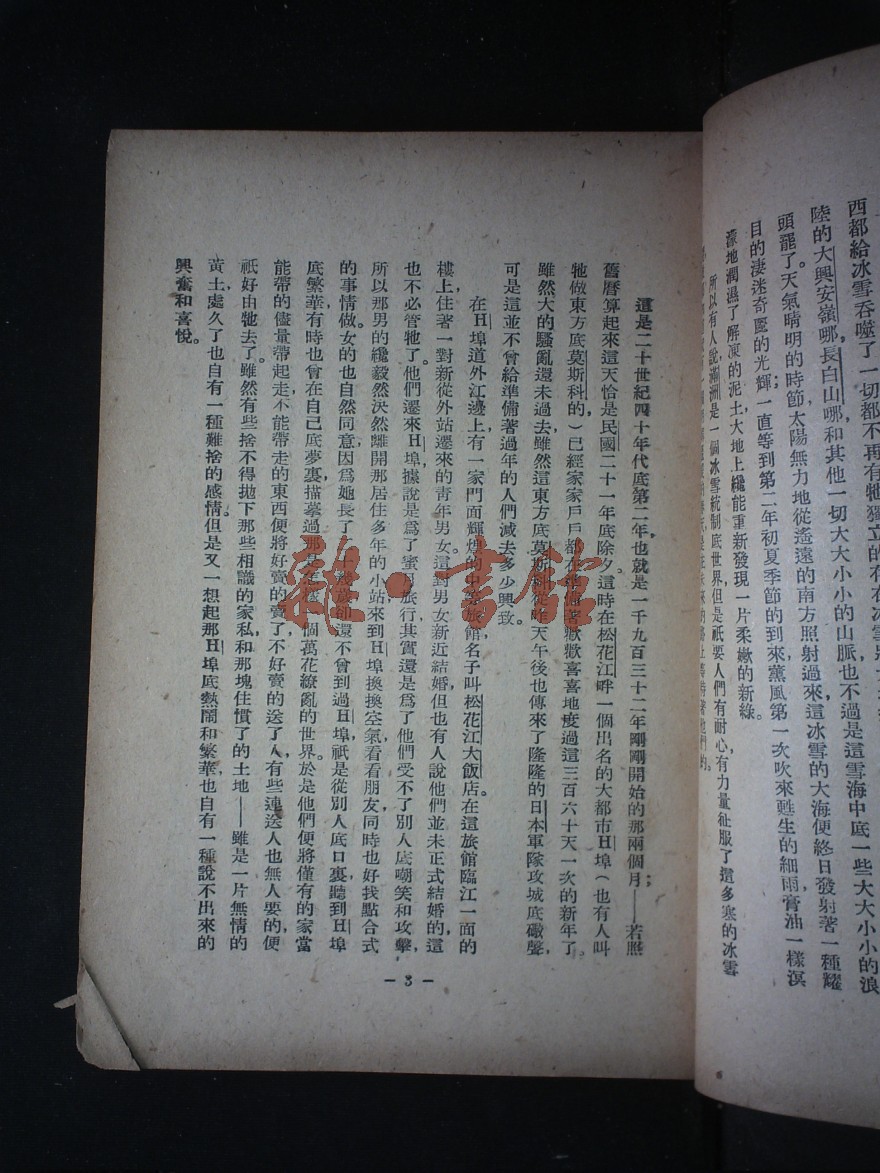 西都給冰雪吞噬了一切都不再有牠獨立的存在冰雪
陸的大興安嶺哪，長白山哪，和其他一切大大小小的山脈也不過是這雪海中底一些大大小小的浪
頭罷了。天氣晴明的時節，太陽無力地從遙遠的南方照射過來，這冰雪的大海便終日發射著一種耀
目的淒迷奇麗的光輝；一直等到第二年初夏季節的到來，薰風第一次吹來甦生的細雨，膏油一樣溟
濛地潤濕了解凍的泥土，大地上纔能重新發現一片柔嫩的新綠。
所以有人說滿洲是一個冰雪統制底世界，但是祇要人們有耐心，有力量征服了這多寒的冰雪
這是二十世紀四十年代底第二年，也就是一千九百三十二年剛剛開始的那兩個月——若照
舊曆算起來，這天恰是民國二十一年底除夕。這時在松花江畔一個出名的大都市H埠（也有人叫
牠做東方底莫斯科的）已經家家戶戶都在準備著歡歡喜喜地度過這三百六十天一次的新年了。
雖然大的騷亂還未過去，雖然這東方底莫斯科從昨天午後也傳來了隆隆的日本軍隊攻城底礮聲，
可是這並不曾給準備著過年的人們減去多少興致。
在H埠道外江邊上有一家門面輝煌的中等旅館，名子叫松花江大飯店。在這旅館臨江一面的
樓上，住著一對新從外站遷來的青年男女。這對男女新近結婚，但也有人說他們並未正式結婚的，這
也不必管牠了。他們遷來H埠，據說是爲了蜜月旅行，其實還是爲了他們受不了別人底嘲笑和攻擊，
所以那男的纔毅然決然離開那居住多年的小站，來到H埠換換空氣，看看朋友，同時也好找點合式
的事情做。女的也自然同意，因爲她長了二十幾歲，卻還不曾到過H埠，祇是從別人底口裏聽到H埠
底繁華，有時也曾在自己底夢裏描摹過那是怎樣一個萬花繚亂的世界。於是他們便將僅有的家當
能帶的儘量帶起走，不能帶走的東西便將好賣的賣了，不好賣的送了人，有些連送人也無人要的，便
祇好由牠去了。雖然有些捨不得拋下那些相識的家私和那塊住慣了的土地——雖是一片無情的
黃土，處久了也自有一種難捨的感情。但是又一想起那H埠底熱鬧和繁華，也自有一種說不出來的
興奮和喜悅。
— 3 —
雜·書館